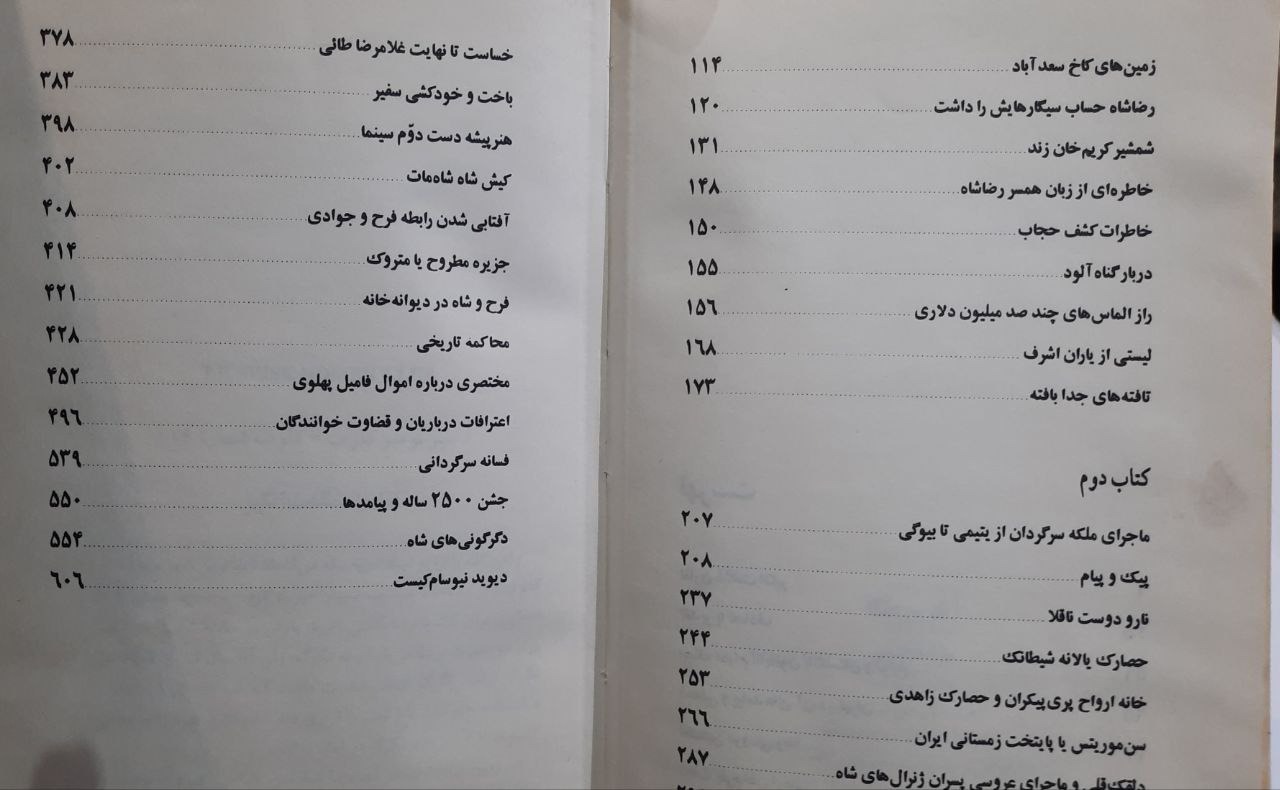 زمین‌های کاخ سعدآباد ۱۱۴
رضاشاه حساب سیگارهایش را داشت ۱۲۰
شمشیر کریم‌خان زند ۱۳۱
خاطره‌ای از زبان همسر رضاشاه ۱۴۸
خاطرات کشف حجاب ۱۵۰
دربار گناه‌آلود ۱۵۵
راز الماس‌های چند صد میلیون دلاری ۱۵۶
لیستی از یاران اشرف ۱۶۸
تافته‌های جدا بافته ۱۷۳
کتاب دوم
ماجرای ملکه سرگردان از یتیمی تا بیوگی ۲۰۷
پیک و پیام ۲۰۸
نارو دوست ناقلا ۲۳۷
حصارک یا لانه شیطانک ۲۴۴
خانه ارواح پری‌پیکران و حصارک زاهدی ۲۵۳
سن‌موریتس یا پایتخت زمستانی ایران ۲۶۶
دلقک‌قلی و ماجرای عروسی پسران ژنرال‌های شاه ۲۸۷
خساست تا نهایت غلامرضا طائی ۳۷۸
باخت و خودکشی سفیر ۳۸۳
هنرپیشه دست دوّم سینما ۳۹۸
کیش شاه شاه‌مات ۴۰۲
آفتابی شدن رابطه فرح و جوادی ۴۰۸
جزیره مطروح یا متروک ۴۱۴
فرح و شاه در دیوانه‌خانه ۴۲۱
محاکمه تاریخی ۴۲۸
مختصری درباره اموال فامیل پهلوی ۴۵۲
اعترافات درباریان و قضاوت خوانندگان ۴۹۶
فسانه سرگردانی ۵۳۹
جشن ۲۵۰۰ ساله و پیامدها ۵۵۰
دگرگونی‌های شاه ۵۵۴
دیوید نیوسام کیست ۶۰۶